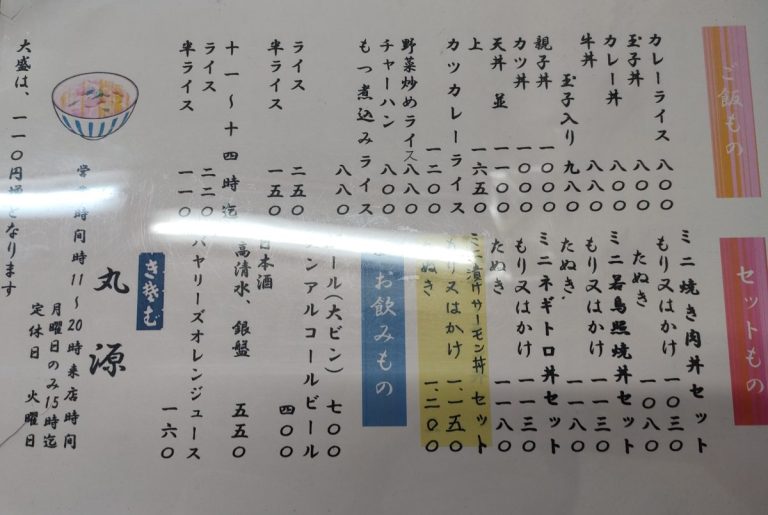 ご飯もの
カレーライス 八〇〇
玉子丼 八〇〇
カレー丼 八〇〇
牛丼 八八〇
玉子入り 九八〇
親子丼 一〇〇〇
カツ丼 一〇〇〇
天丼 並 一一〇〇
上 一六五〇
カツカレーライス 一二〇〇
野菜炒めライス 八八〇
チャーハン 八〇〇
もつ煮込みライス 八八〇
ライス 二五〇
半ライス 一五〇
十一〜十四時迄
ライス 二二〇
半ライス 一一〇
大盛は、一一〇円増となります
セットもの
ミニ焼き肉丼セット
もり又はかけ 一〇三〇
たぬき 一〇八〇
ミニ若鳥照焼丼セット
もり又はかけ 一一三〇
たぬき 一一八〇
ミニネギトロ丼セット
もり又はかけ 一一三〇
たぬき 一一八〇
ミニ漬けサーモン丼 セット
もり又はかけ 一.一五〇
たぬき 一.二〇〇
お飲みもの
ール(大ビン) 七〇〇
ンアルコールビール 四〇〇
日本酒
高清水、銀盤 五五〇
バヤリーズオレンジュース 一六〇
きそば
丸源
営業時間 11〜20時来店時間
月曜日のみ15時迄
定休日 火曜日